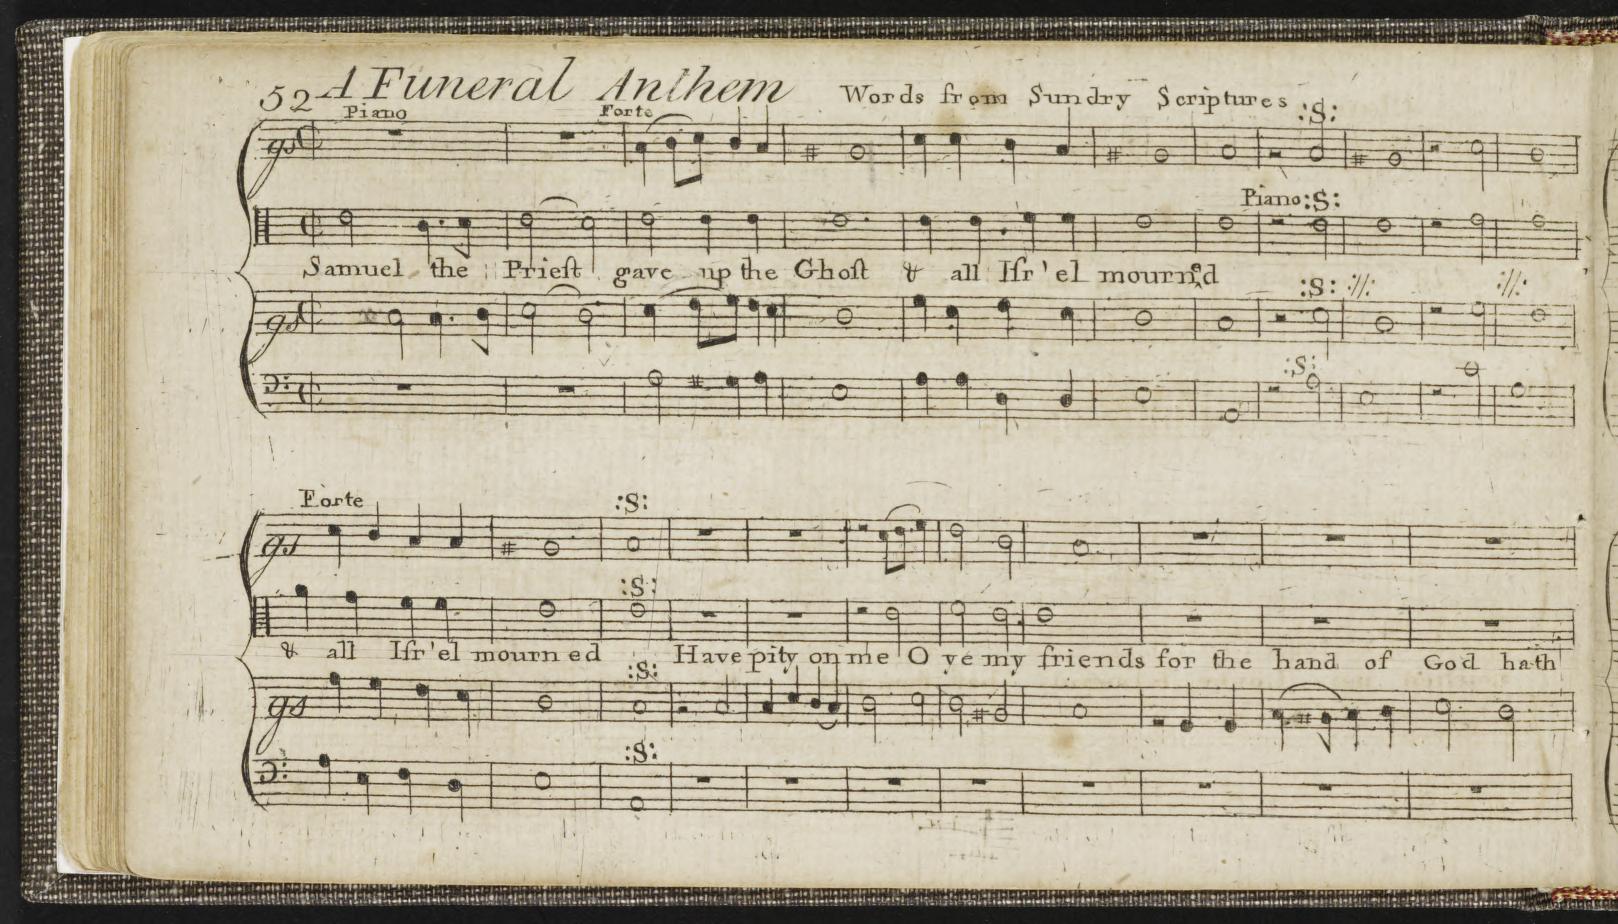 52 A Funeral Anthem Words from Sundry Scriptures :S:
Piano Forte
gs
Piano :S:
Samuel the Prieſt gave up the Ghoſt & all Iſr'el mourned
:S: :||: :||:
gs
:S:
Forte :S:
gs
:S:
& all Iſr'el mourn ed Have pity on me O ye my friends for the hand of God hath
:S:
gs
:S: